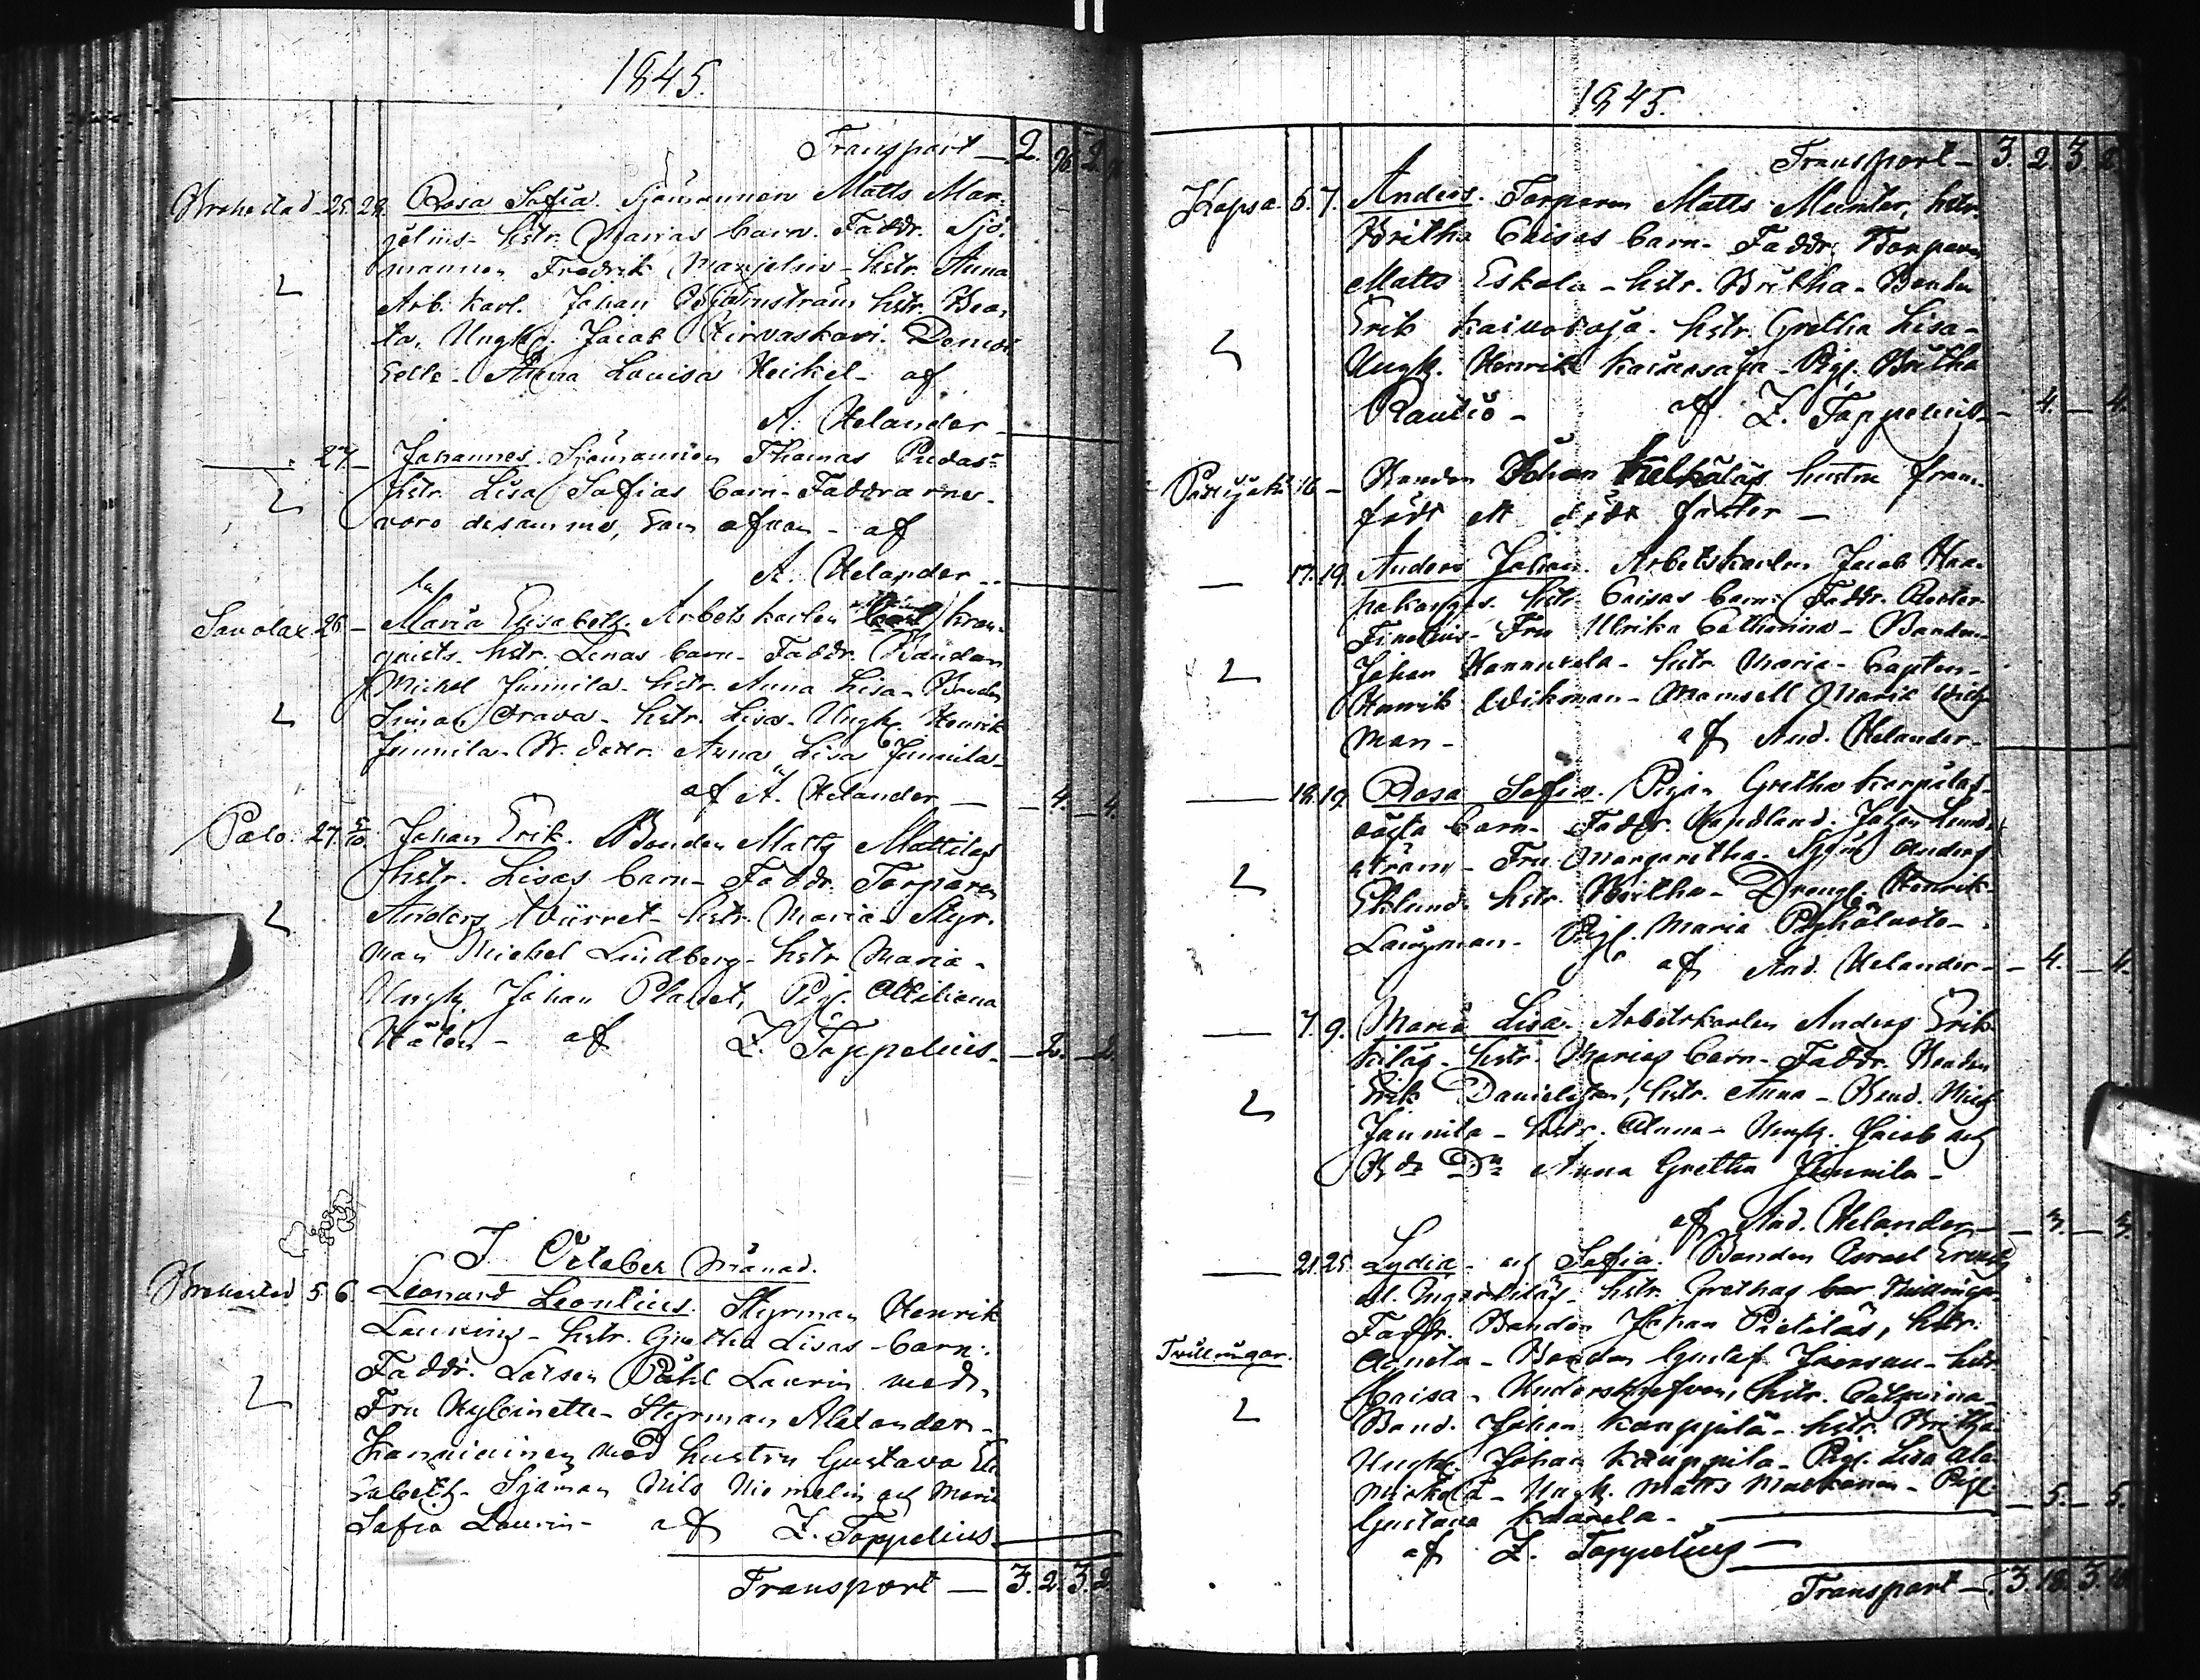 1845.
Transport — 2.
Brahestad 25. 28. Rosa Sofia. Sjömannen Matts Man-
jelius hstr. Marias barn. Faddr. Sjö-
mannen Fredrik Manjelius - hstr. Anna
Arb. karl. Johan hstr. Bea-
ta, Ungk. Jacob Kirvaskari. Demoi
selle - Anna Lovisa Heikel - af
A. Helander -
27 - Johannes. Sjömannen Thomas Pudas-
hstr. Lisa Sofias barn - Faddrarne
voro desamme, som ofvan - af
A. Helander -
Savolax 26 - Maria Elisabeth. Arbetskarlen Kron-
quists hstr. Lenas barn - Faddr. Bonden
Michel Junnila - hstr. Anna Lisa - Bonden
Simon Orava - hstr. Lisa - Ungk. Henrik
Junnila - B. dottr. Anna Lisa Junnila -
af A. Helander — 4. 4.
Palo. 27. 5/10. Johan Erik. Bonden Matts Mattilas
hstr. Lisas barn - Faddr. Torparen
Anders hstr. Maria - Styr-
man Michel Lindberg - hstr Maria -
Ungk. Johan Planet, Pig.
af Z. Toppelius - 2. 2.
I October Månad.
Brahestad 5 6. Leonard Leontius. Styrman Henrik
Laurins - hstr. Gretha Lisas barn.
Faddr. Lotsen Påhl Laurin med
Fru - Styrman Alexander
med hustru Gustava Eli
sabeth - Sjöman Nils Niemelin och Maria
Sofia Laurin - af Z. Toppelius -
Transport — 3. 2. 3. 2.
1845.
Transport — 3. 2. 3. 2
Kopsa. 6. 7. Anders. Torparen Matts Munter, hstr.
Britha Caisas barn - Faddr. Torparen
Matts Eskola - hstr. Britha - Bonden
Erik Kaivosoja - hstr. Gretha Lisa -
Ungk. Henrik Kaivosoja - Pig. Britha
Rautio - af Z. Toppelius - 4. - 4.
Pattijoki 16 - Bonden Johan hustru fram-
född ett dödt foster —
17. 19. Anders Johan. Arbetskarlen Jacob Haa-
pakangas - hstr. Caisas barn. Faddr.
Fru Ulrika Catharina - Bonden
Johan Hannuksela - hstr Maria - Capten -
Henrik Wikman - Mamsell Maria Wik-
man - af And. Helander -
18. 19. Rosa Sofia. Pigan Gretha Karpilas
oäkta barn - Faddr. Handland. Johan Lund-
ström - Fru Margaretha. Sjöm. Anders
Eklund. hstr. Britha - Dreng. Henrik
Laurman - Pig. Maria
af And. Helander - 4. - 4.
7. 9. Maria Lisa. Arbetskarlen Anders Erik
kilas - hstr. Marias barn - Faddr. Bonden
Erik Danielson, hstr. Anna - Bond. Mich
Junnila - hstr. Anna - Ungk. Jacob och
Bde Dr Anna Gretha Junnila -
af And. Helander - 3. - 3.
21. 25. Lydia - och Sofia. Bonden Israel
hstr. Grethas barn Tvillingar
Faddr. Bonden Johan Pietiläs, hstr.
Tvillingar. Agneta - Bonden Gustaf hstr
Maisa -
Bond. Johan Kauppila - hstr. Britha
Ungk. Johan Kauppila - Pig. Lisa Ala
- Ungk. Matts - Pig. — 5. - 5.
Gustava Kaarela -
af Z. Toppelius -
Transport — 3. 18. 3. 18